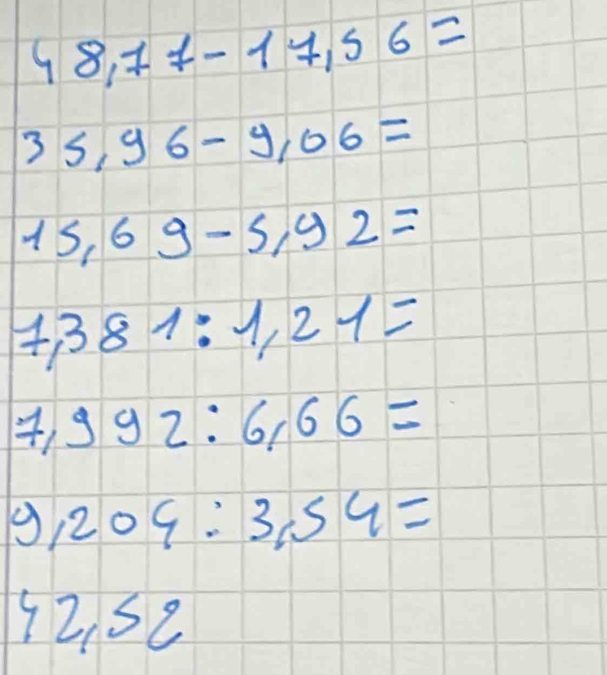 48,77-17,56=
35,96-9,06=
15,69-5,92=
7,381:1,21=
7,992:6,66=
9,204:3,54=
42,52